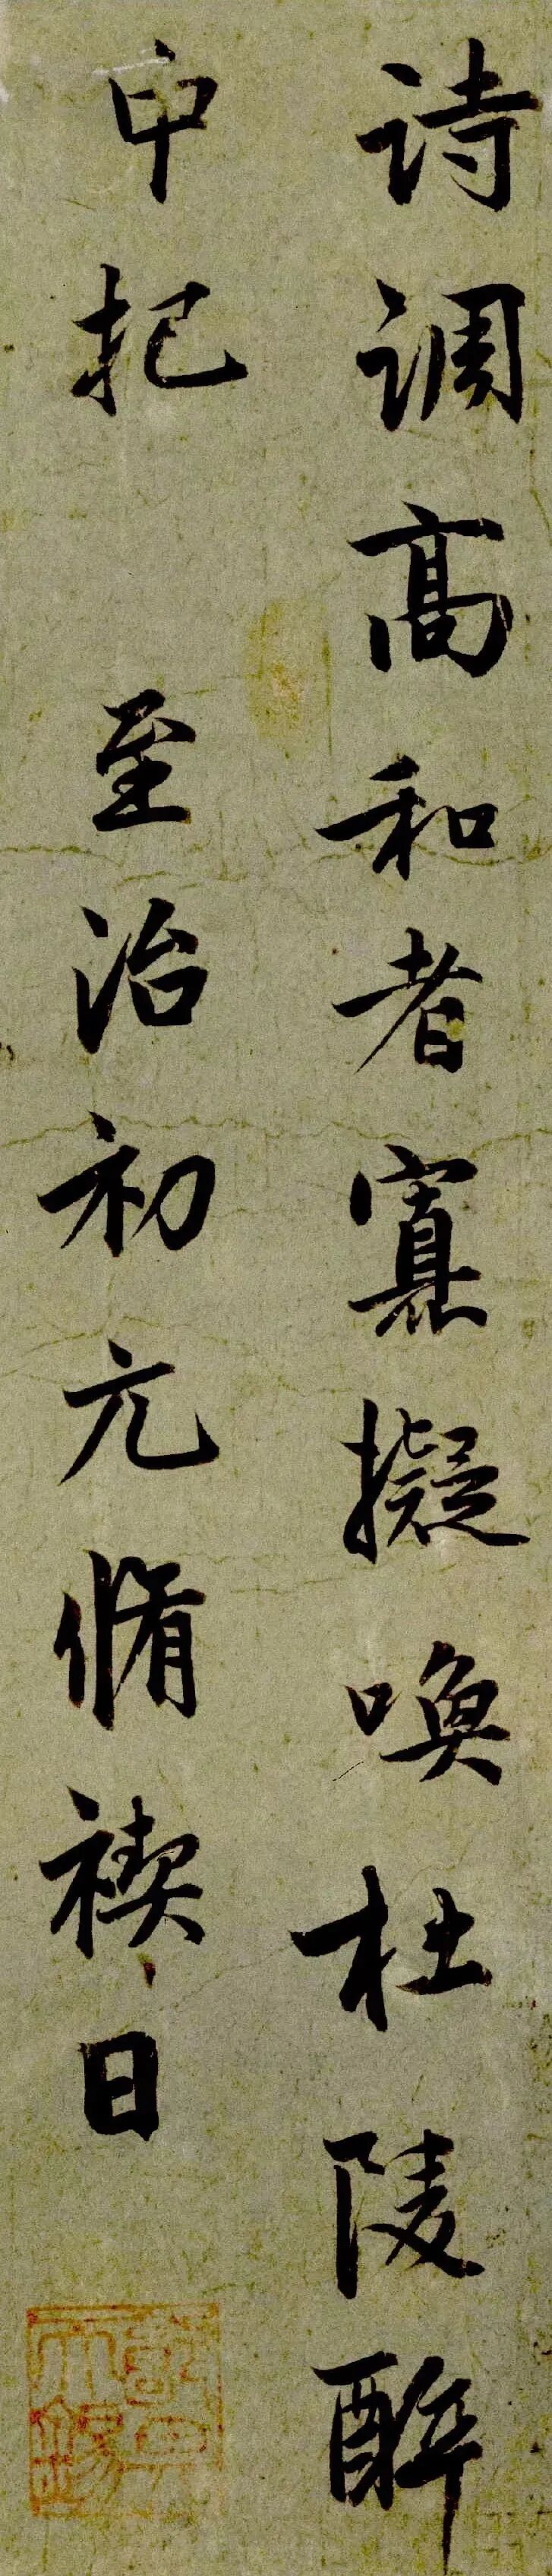 詩調高和者寡擬喚杜陵醉
中把 至治初元脩禊日